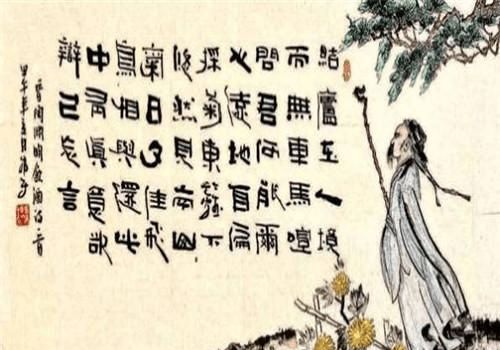 結廬在人境
而無車馬喧
問君何能爾
心遠地自偏
採菊東籬下
悠然見南山
日夕佳飛
鳥相與還此
中有真意欲
辯已忘言
晉陶淵明飲酒詩一首
甲午年